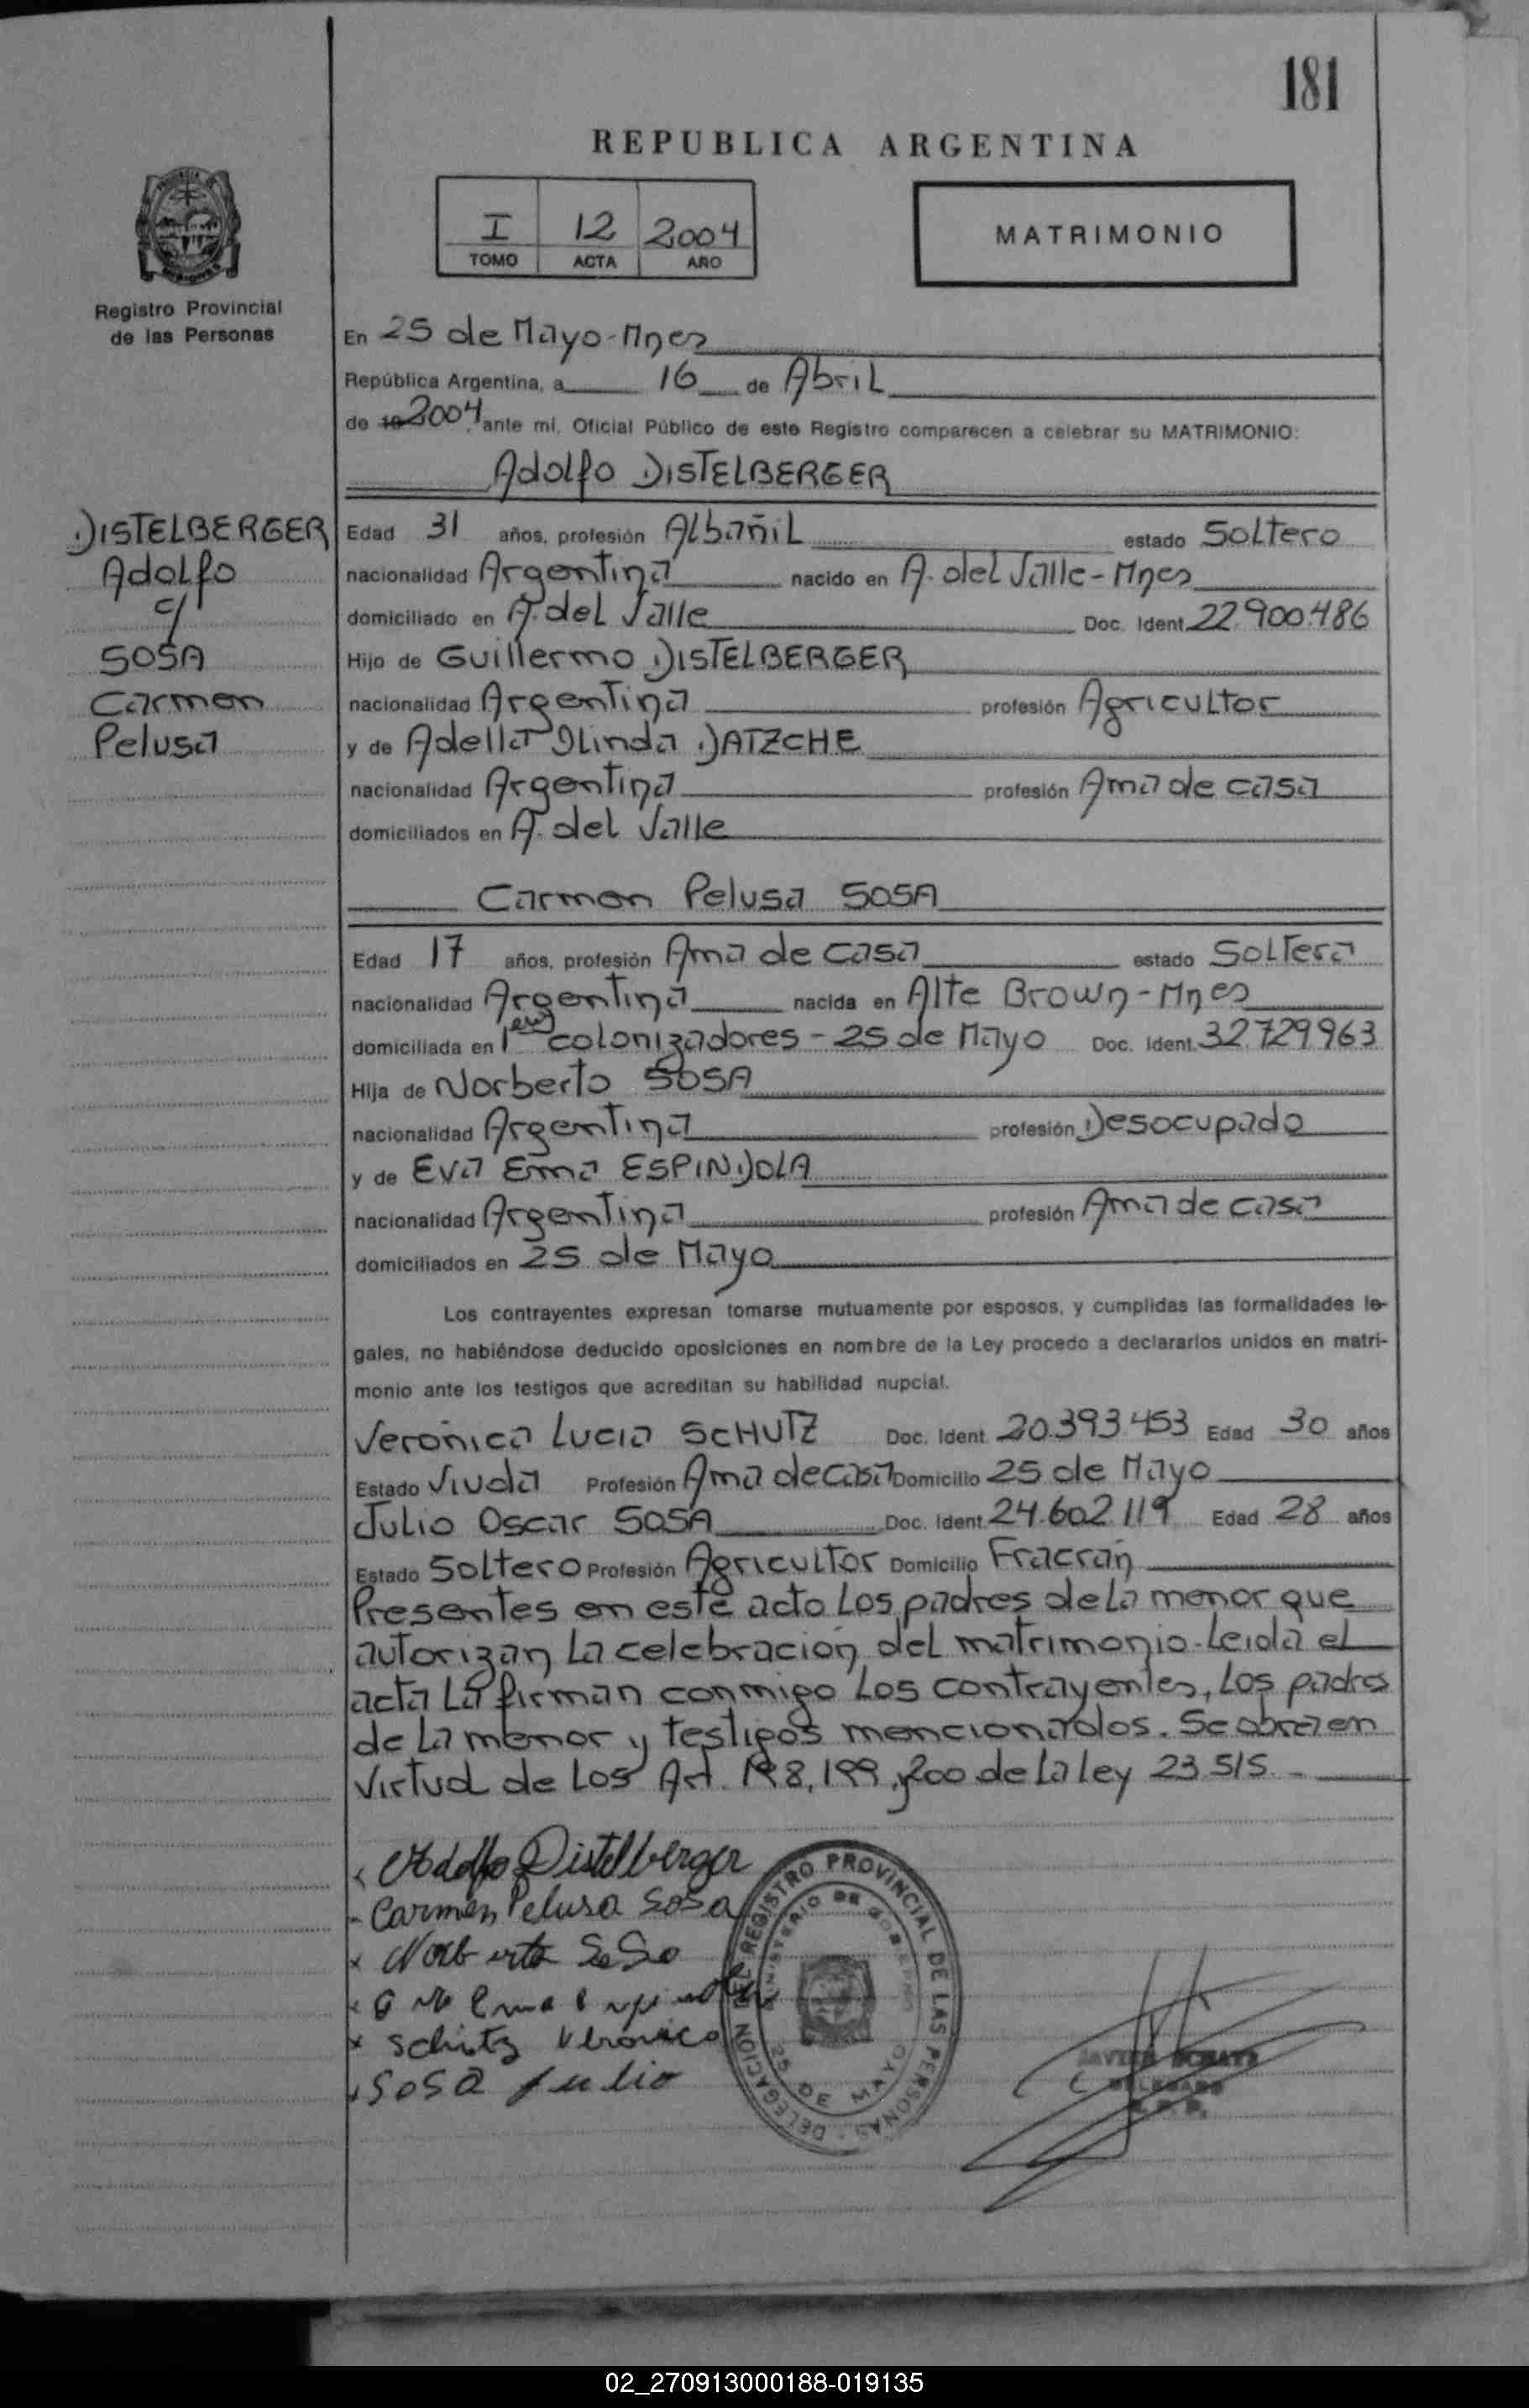 181
REPUBLICA ARGENTINA
I 12 2004
TOMO ACTA AÑO
MATRIMONIO
Registro Provincial
de las Personas
En 25 de Mayo-Mnes
República Argentina, a 16 de Abril
de 19 2004, ante mí, Oficial Público de este Registro comparecen a celebrar su MATRIMONIO:
Adolfo DISTELBERGER
DISTELBERGER
Adolfo
c/
SOSA
Carmen
Pelusa
Edad 31 años, profesión Albañil estado Soltero
nacionalidad Argentina nacido en A. del Valle-Mnes
domiciliado en A. del Valle Doc. Ident. 22.900.486
Hijo de Guillermo DISTELBERGER
nacionalidad Argentina profesión Agricultor
y de Adella Olinda DATZCHE
nacionalidad Argentina profesión Ama de casa
domiciliados en A. del Valle
Carmen Pelusa SOSA
Edad 17 años, profesión Ama de casa estado Soltera
nacionalidad Argentina nacida en Alte Brown-Mnes
domiciliada en 1eros colonizadores-25 de Mayo Doc. Ident. 32.729.963
Hija de Norberto SOSA
nacionalidad Argentina profesión Desocupado
y de Eva Ema ESPINDOLA
nacionalidad Argentina profesión Ama de casa
domiciliados en 25 de Mayo
Los contrayentes expresan tomarse mutuamente por esposos, y cumplidas las formalidades le-
gales, no habiéndose deducido oposiciones en nombre de la Ley procedo a declararlos unidos en matri-
monio ante los testigos que acreditan su habilidad nupcial.
Verónica Lucia SCHUTZ Doc. Ident. 20.393.453 Edad 30 años
Estado Viuda Profesión Ama de casa Domicilio 25 de Mayo
Julio Oscar SOSA Doc. Ident. 24.602.119 Edad 28 años
Estado Soltero Profesión Agricultor Domicilio Fracrán
Presentes en este acto los padres de la menor que
autorizan la celebración del matrimonio-Leida el
acta la firman conmigo los contrayentes, los padres
de la menor y testigos mencionados. Se obra en
virtud de los Art. 198, 199, y 200 de la ley 23.515.-
Adolfo Distelberger
Carmen Pelusa Sosa
Norberto Sosa
Schutz Veronica
Sosa Julio
DELEGACION DEL REGISTRO PROVINCIAL DE LAS PERSONAS
MINISTERIO DE GOBIERNO
25 DE MAYO
JAVIER
DELEGADO
02_270913000188-019135